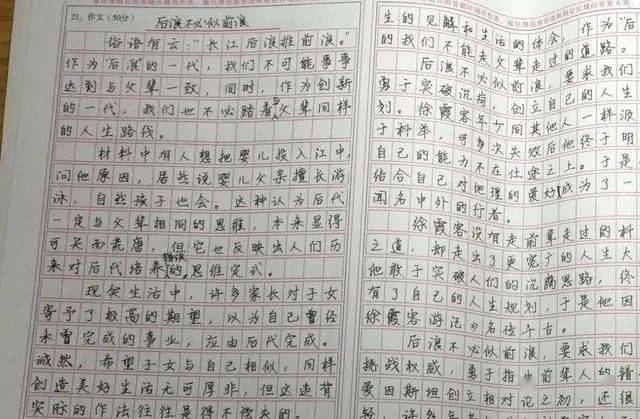 21、作文（50分）
后浪不必似前浪
俗语有云：“长江后浪推前浪。”
作为“后浪”的一代，我们不可能事事
达到与父辈一致，同时，作为创新
的一代，我们也不必踏着与父辈同样
的人生路线。
材料中有人想把婴儿投入江中，
问他原因，居然说婴儿父亲擅长游
泳，自然孩子也会。这种认为后代
一定与父辈相同的思维，本来显得
可笑而荒唐，但它也反映出人们历
来对后代培养错误的思维定式。
现实生活中，许多家长对子女
寄予了极高的期望，以为自己曾经
未曾完成的事业，应由后代完成。
诚然，希望子女与自己相似，同样
创造美好生活无可厚非，但这违背
实际的作法往往是得不偿失的。
生的见解和生活的体会，作为“后
的我们不能走父辈走过的道路。
后浪不必似前浪，要求我们
勇于突破沉荷，创立自己的人生
划。徐霞客年少同其他人一样派
于科举，可多次失败后他终于明
自己的能力不在仕途之上。于是
结合自己对地理的爱好成为了一
闻名中外的行者。
徐霞客没有走前辈走过的科
之道，却走出了更宽广的人生大
他敢于突破人们的沉腐思路，终
有了自己的人生规划，于是他因
徐霞客游记》名垂千古。
后浪不必似前浪，要求我们
挑战权威，勇于指出前辈人的错
爱因斯坦创立相对论之初，还很